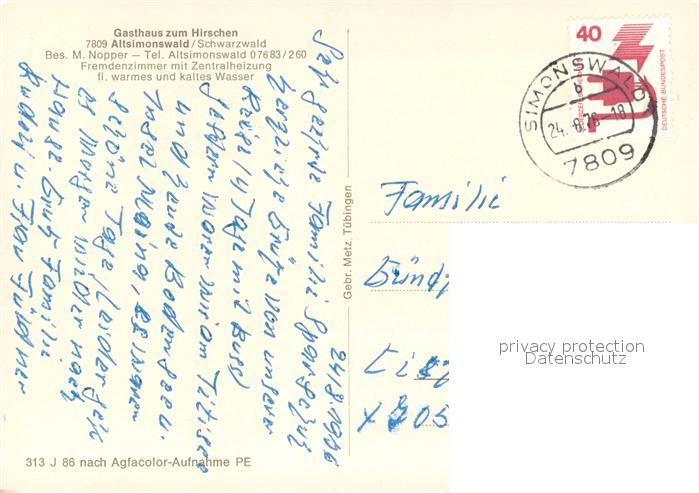 Gasthaus zum Hirschen
7809 Altsimonswald/Schwarzwald
Bes. M. Nopper – Tel. Altsimonswald 07683/260
Fremdenzimmer mit Zentralheizung
fl. warmes und kaltes Wasser
24/8/1976
Sehr geehrte Familie
herzliche Grüße von unserer
Reise (4 Tage mit Bus)
Gestern waren wir am Titisee
und heute Bodensee u.
Insel Mainau, es waren
schöne Tage, leider geht
es morgen wieder nach
Hause. Gruß Familie
u. Frau
Gebr. Metz, Tübingen
313 J 86 nach Agfacolor-Aufnahme PE
40
DEUTSCHE BUNDESPOST
SIMONSWALD
b
24.-8.76-18
7809
Familie
privacy protection
Datenschutz